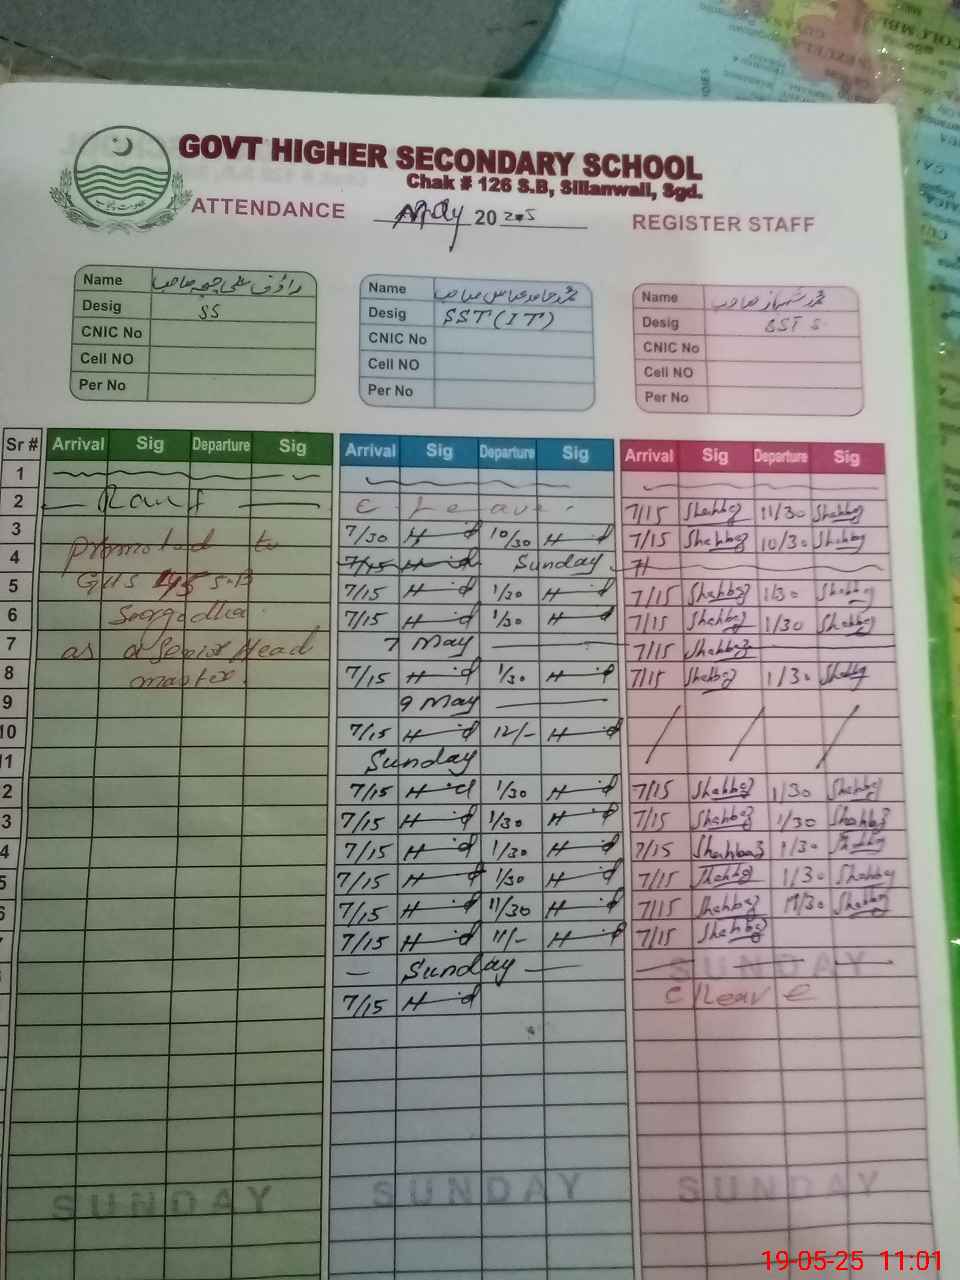 GOVT HIGHER SECONDARY SCHOOL
Chak # 126 S.B, Sillanwali, Sgd.
ATTENDANCE May 2025 REGISTER STAFF
Name
Desig SS
CNIC No
Cell NO
Per No
Name محمد حامد عباس صاحب
Desig SST (IT)
CNIC No
Cell NO
Per No
Name محمد شہباز صاحب
Desig SST S
CNIC No
Cell NO
Per No
Sr # Arrival Sig Departure Sig Arrival Sig Departure Sig Arrival Sig Departure Sig
1
2 Rauf C Leave. 7/15 Shahbaz 11/30 Shahbaz
3 promoted to 7/30 H d 10/30 H d 7/15 Shahbaz 10/30 Shahbaz
4 GHS 45 S.B 7/15 H d Sunday
5 Sargodha 7/15 H d 1/30 H d 7/15 Shahbaz 1/30 Shahbaz
6 7/15 H d 1/30 H d 7/15 Shahbaz 1/30 Shahbaz
7 as a Senior Head 7 May 7/15 Shahbaz
8 master. 7/15 H d 1/30 H d 7/15 Shahbaz 1/30 Shahbaz
9 9 May
10 7/15 H d 12/- H d
11 Sunday
2 7/15 H d 1/30 H d 7/15 Shahbaz 1/30 Shahbaz
3 7/15 H d 1/30 H d 7/15 Shahbaz 1/30 Shahbaz
4 7/15 H d 1/30 H d 7/15 Shahbaz 1/30 Shahbaz
5 7/15 H d 1/30 H d 7/15 Shahbaz 1/30 Shahbaz
6 7/15 H d 11/30 H d 7/15 Shahbaz 11/30 Shahbaz
7/15 H d 11/- H d 7/15 Shahbaz
Sunday SUNDAY
7/15 H d C/Leave
SUNDAY SUNDAY SUNDAY
19-05-25 11:01